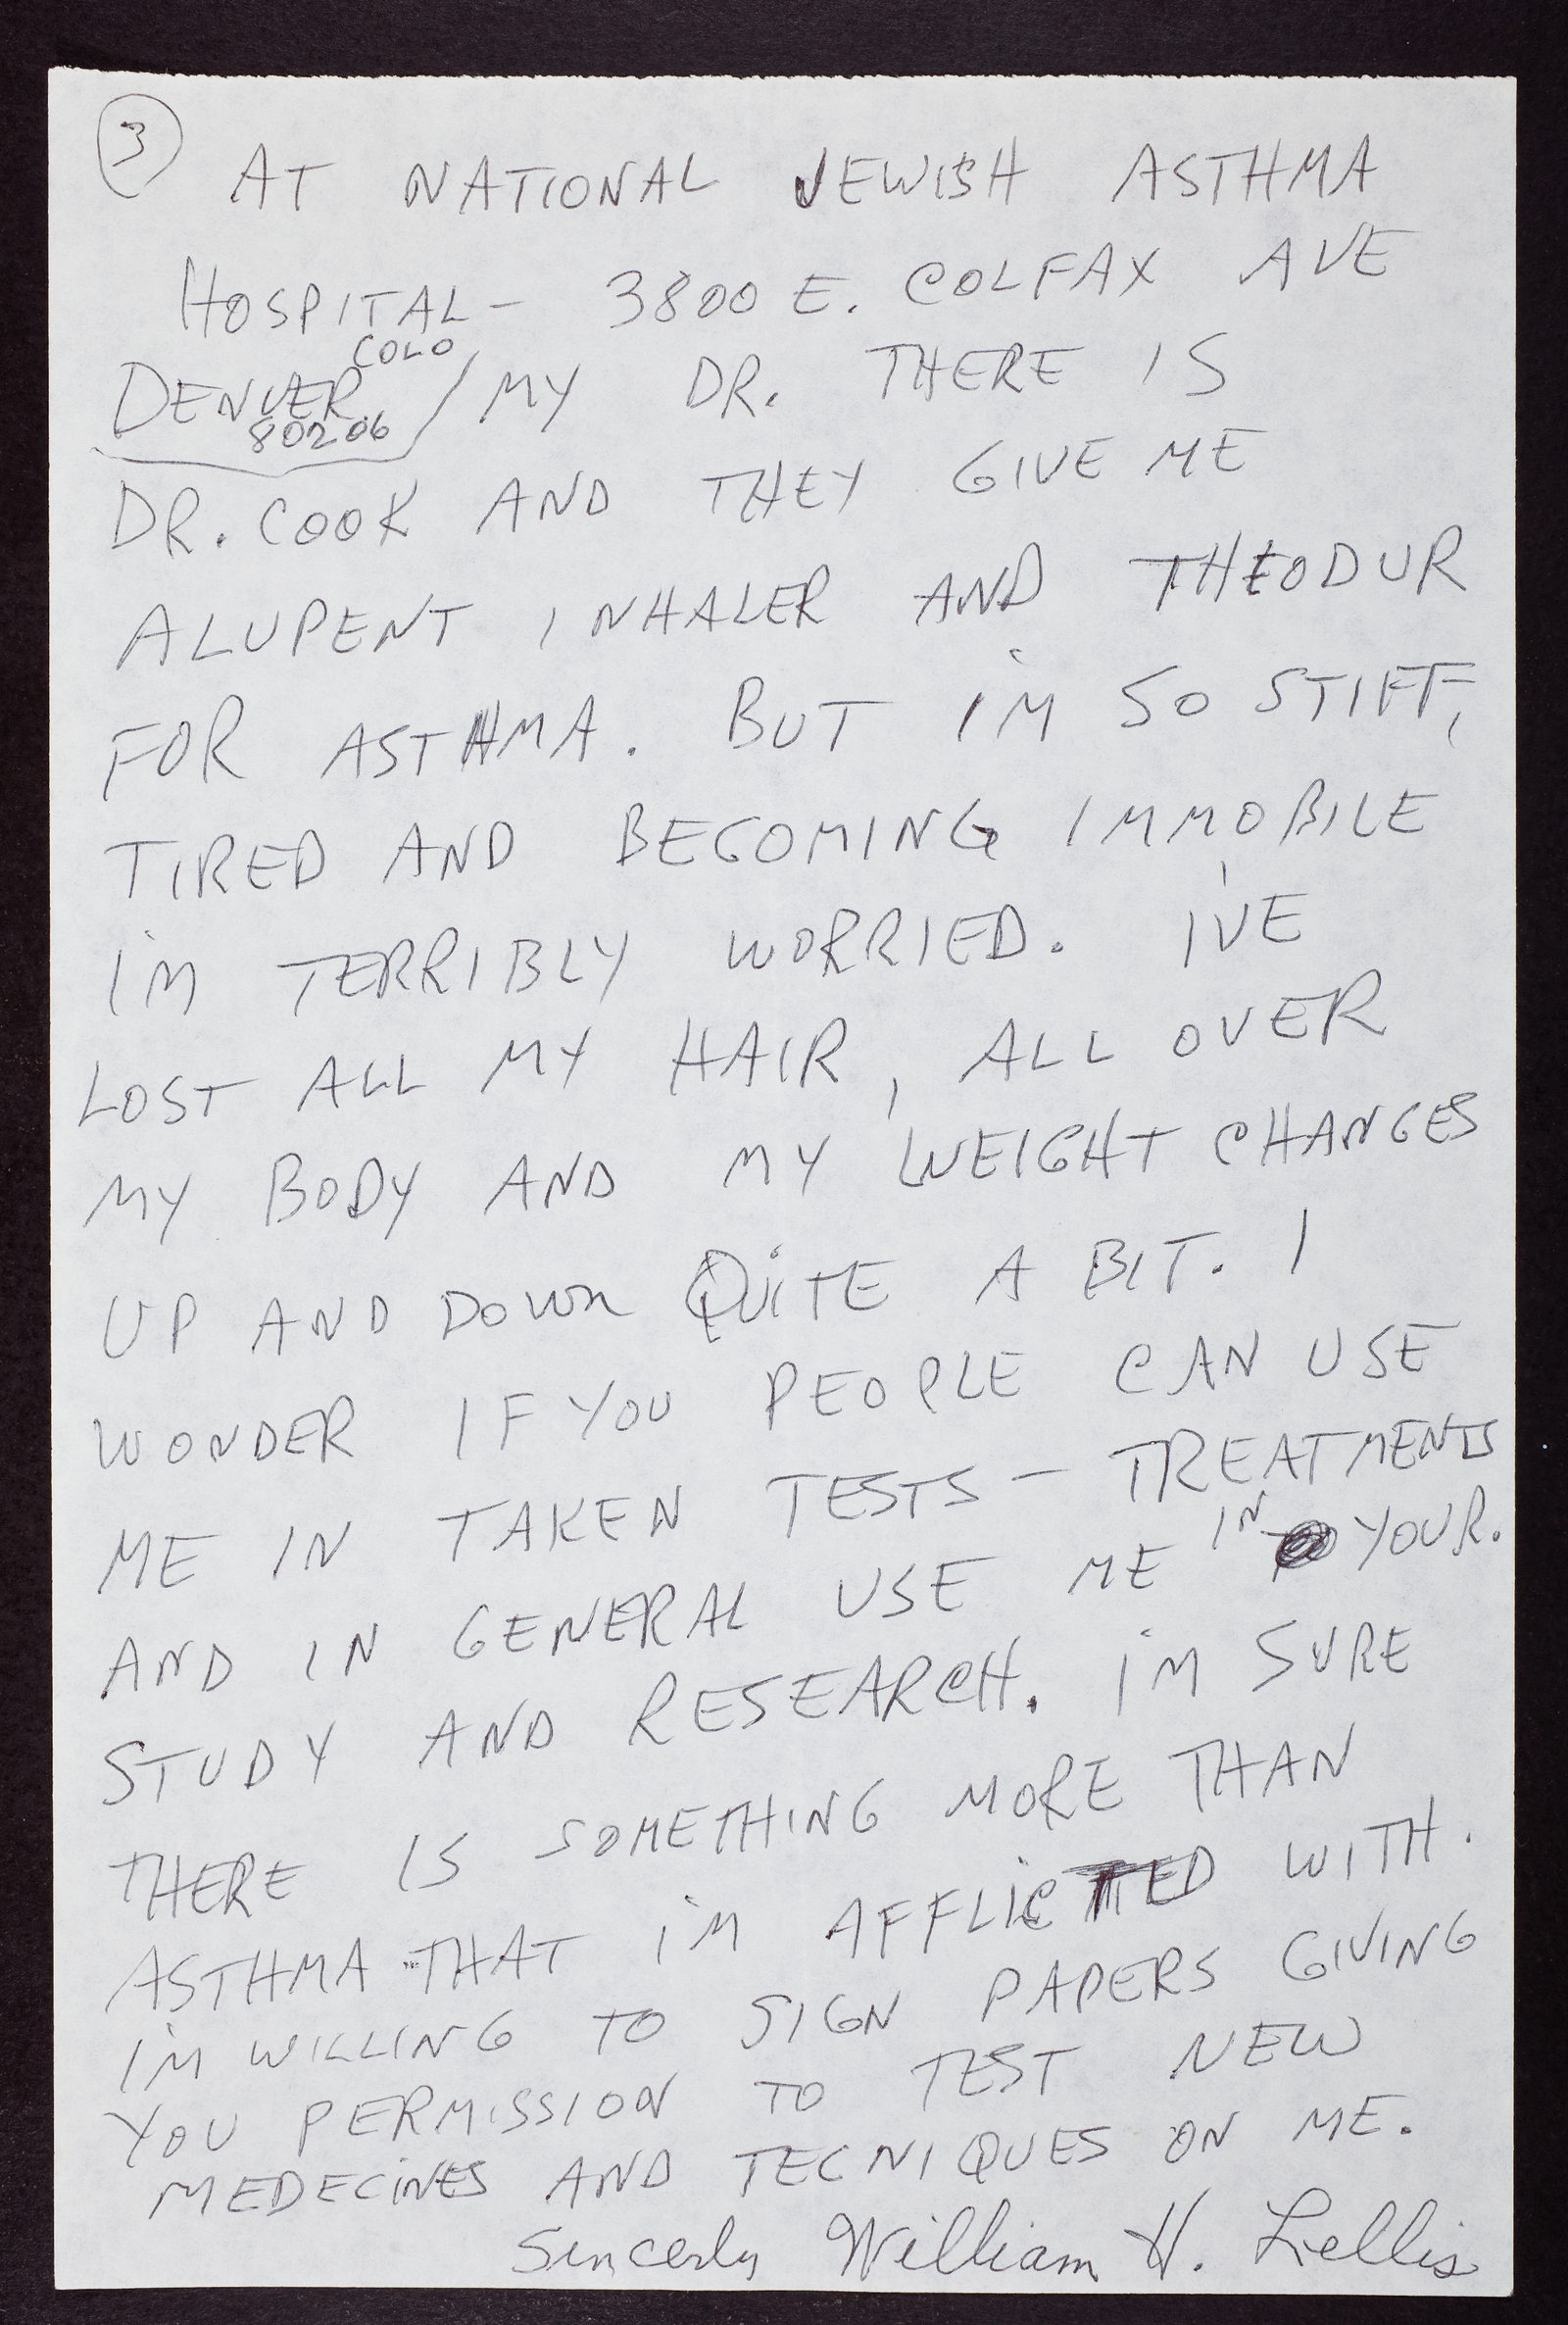 3
AT NATIONAL JEWISH ASTHMA
HOSPITAL - 3800 E. COLFAX AVE
COLO
DENVER / MY DR. THERE IS
80206
DR. COOK AND THEY GIVE ME
ALUPENT INHALER AND THEODUR
FOR ASTHMA. BUT I'M SO STIFF,
TIRED AND BECOMING IMMOBILE
I'M TERRIBLY WORRIED. I'VE
LOST ALL MY HAIR, ALL OVER
MY BODY AND MY WEIGHT CHANGES
UP AND DOWN QUITE A BIT. I
WONDER IF YOU PEOPLE CAN USE
ME IN TAKEN TESTS - TREATMENTS
AND IN GENERAL USE ME IN YOUR.
STUDY AND RESEARCH. I'M SURE
THERE IS SOMETHING MORE THAN
ASTHMA THAT I'M AFFLICTED WITH.
I'M WILLING TO SIGN PAPERS GIVING
YOU PERMISSION TO TEST NEW
MEDECINES AND TECNIQUES ON ME.
Sincerly William H. Lellis